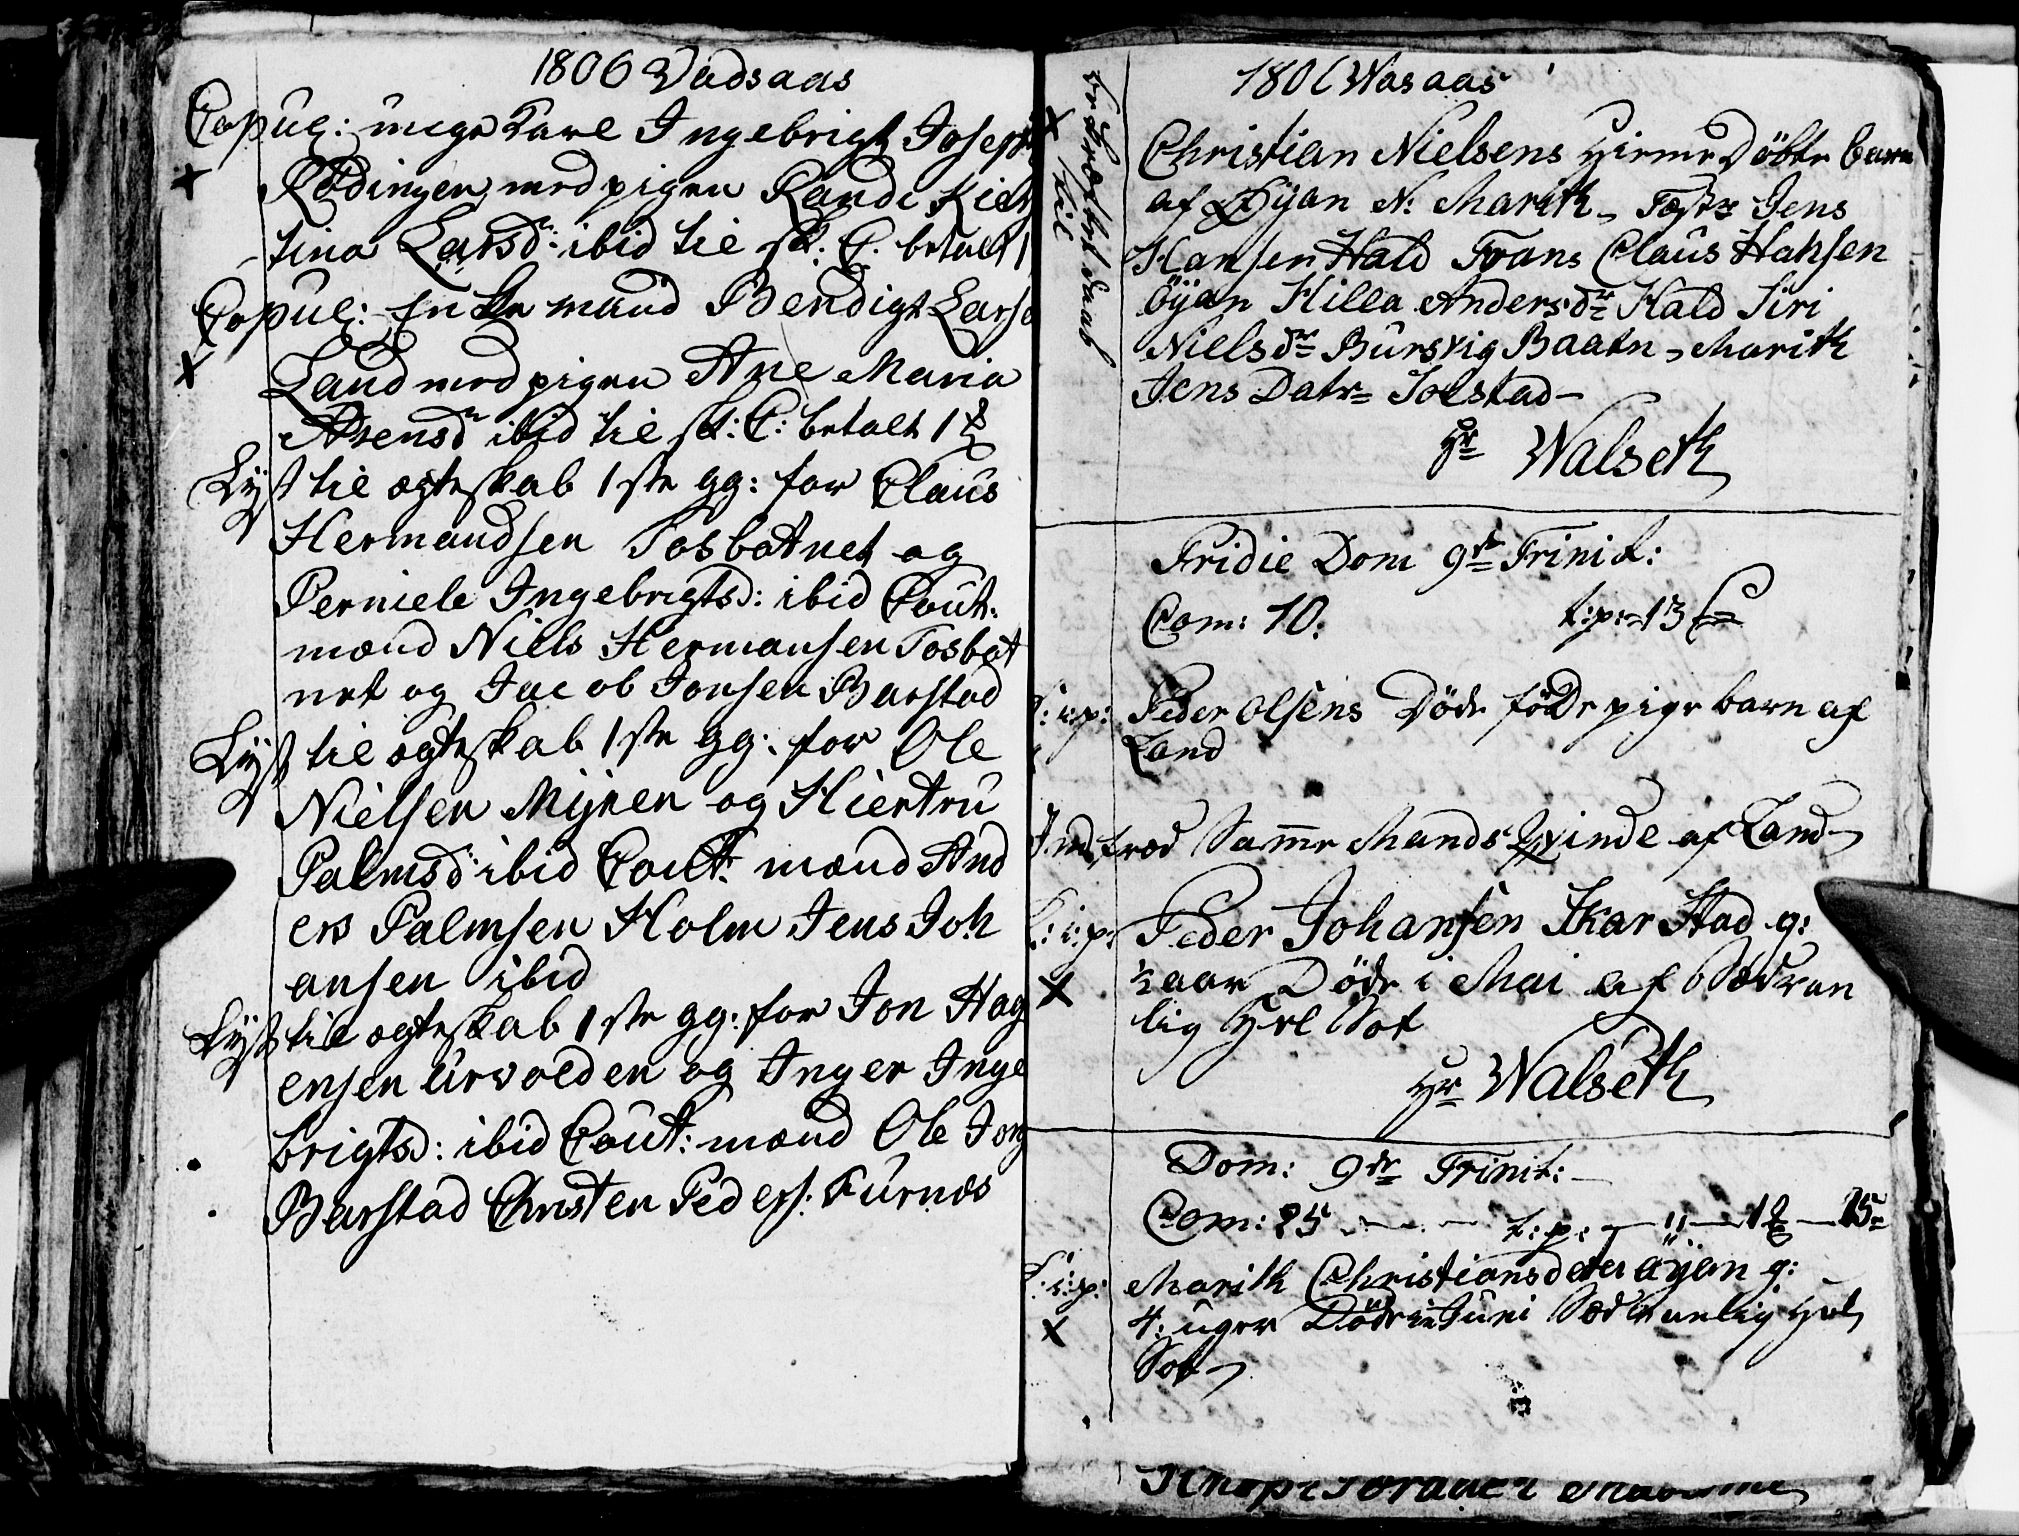 1806 Vadsaas
Copul: unge Karl Ingebrigt Joseph
Rødingen med pigen Randi Kiels
tina Larsd: ibid til sk: C. betalt 1
Copul: Enke mand Bendigt Larse
Land med pigen Ane Maria
Arensdr ibid til sk: C: betalt 1
Lyst til ægteskab 1ste gg: for Claus
Hermandsen Tosbotnet og
Perniele Ingebrigtsd: ibid Caut:
mænd Niels Hermansen Tosbot
net og Jacob Jonsen Barstad
Lyst til ægteskab 1ste gg: for Ole
Nielsen Myren og Hiertru
Palmsd: ibid Caut: mænd And
ers Palmsen Holm Jens Joh
ansen ibid
Lyst til ægteskab 1ste gg: for Jon Hag
ensen Urvolden og Inger Inge
brigtsd: ibid Caut: mænd Ole Jons
Barstad Christen Peders: Furnes
1806 Wasaas
bekræftet daab
til
Christian Nielsens hieme Døbte barn
af Øyan N: Marith, Fadr Jens
Hansen Hald Frans Claus Hansen
Øyan Hilla Andersdr Hald Siri
Nielsdr Bursvig Baatn, Marith
Jens Datr Solstad
Hr Walseth
Fridie Dom 9de Trinit:
Com: 10: t:p: 13
I:i:p: Peder Olsens Døde føde pige barn af
Land
Introd Samme Mands Qvinde af Land
I:i:p: Peder Johansen Skarstad g:
½ aar Døde i Mai af Sædvan
lig Hel Sot
Hr Walseth
Dom: 9de Trinit:
Com: 25 t:p: 1 15
I:i:p: Marith Christiansdater Øyan g:
4: uger Døde in Juni Sædvanlig Hel
Sot